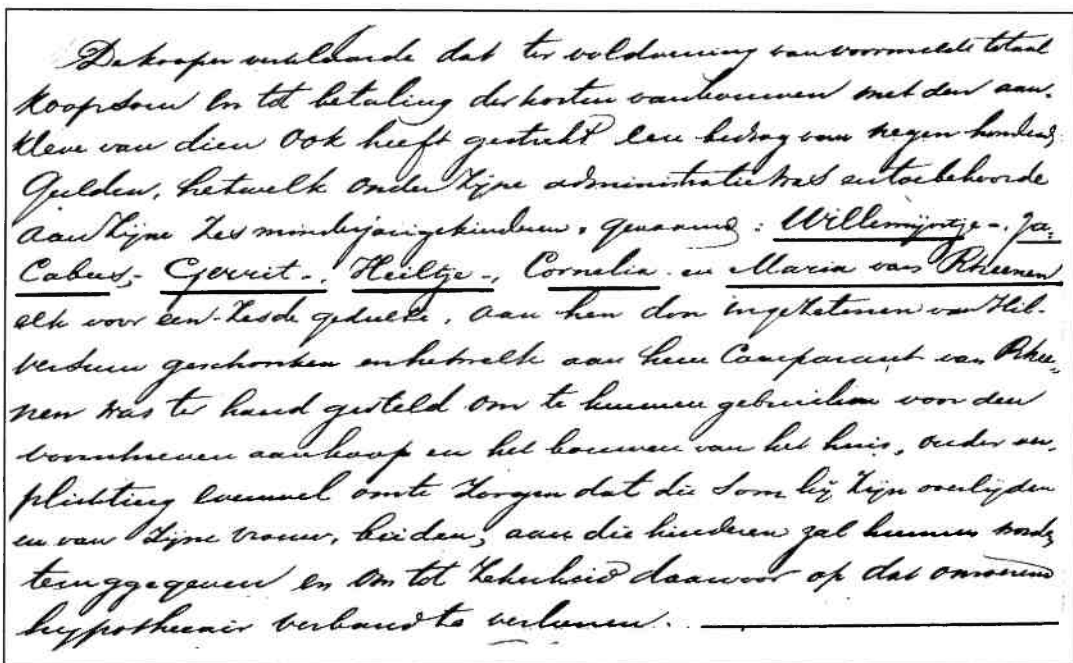 De kooper verklaarde dat ter voldoening van voormelde totaal
koopsom en tot betaling der kosten van bouwen met den aan-
kleve van dien ook heeft gestrekt een bedrag van negen honderd
Gulden, hetwelk onder zijne administratie was en toebehoorde
aan zijne zes minderjarige kinderen, genaamd: Willemijntje-, Ja-
cobus,- Gerrit-, Heiltje-, Cornelia- en Maria van Rheenen
elk voor een zesde gedeelte, aan hen door ingezetenen van Hil-
versum geschonken en hetwelk aan hem Comparant van Rhee-
nen was ter hand gesteld om te kunnen gebruiken voor den
voorschreven aankoop en het bouwen van het huis, onder ver-
plichting evenwel om te zorgen dat die som bij zijn overlijden
en van zijne vrouw, beiden, aan die kinderen zal kunnen worden
teruggegeven en om tot zekerheid daarvoor op dat onroerend
hypothecair verband te verleenen.